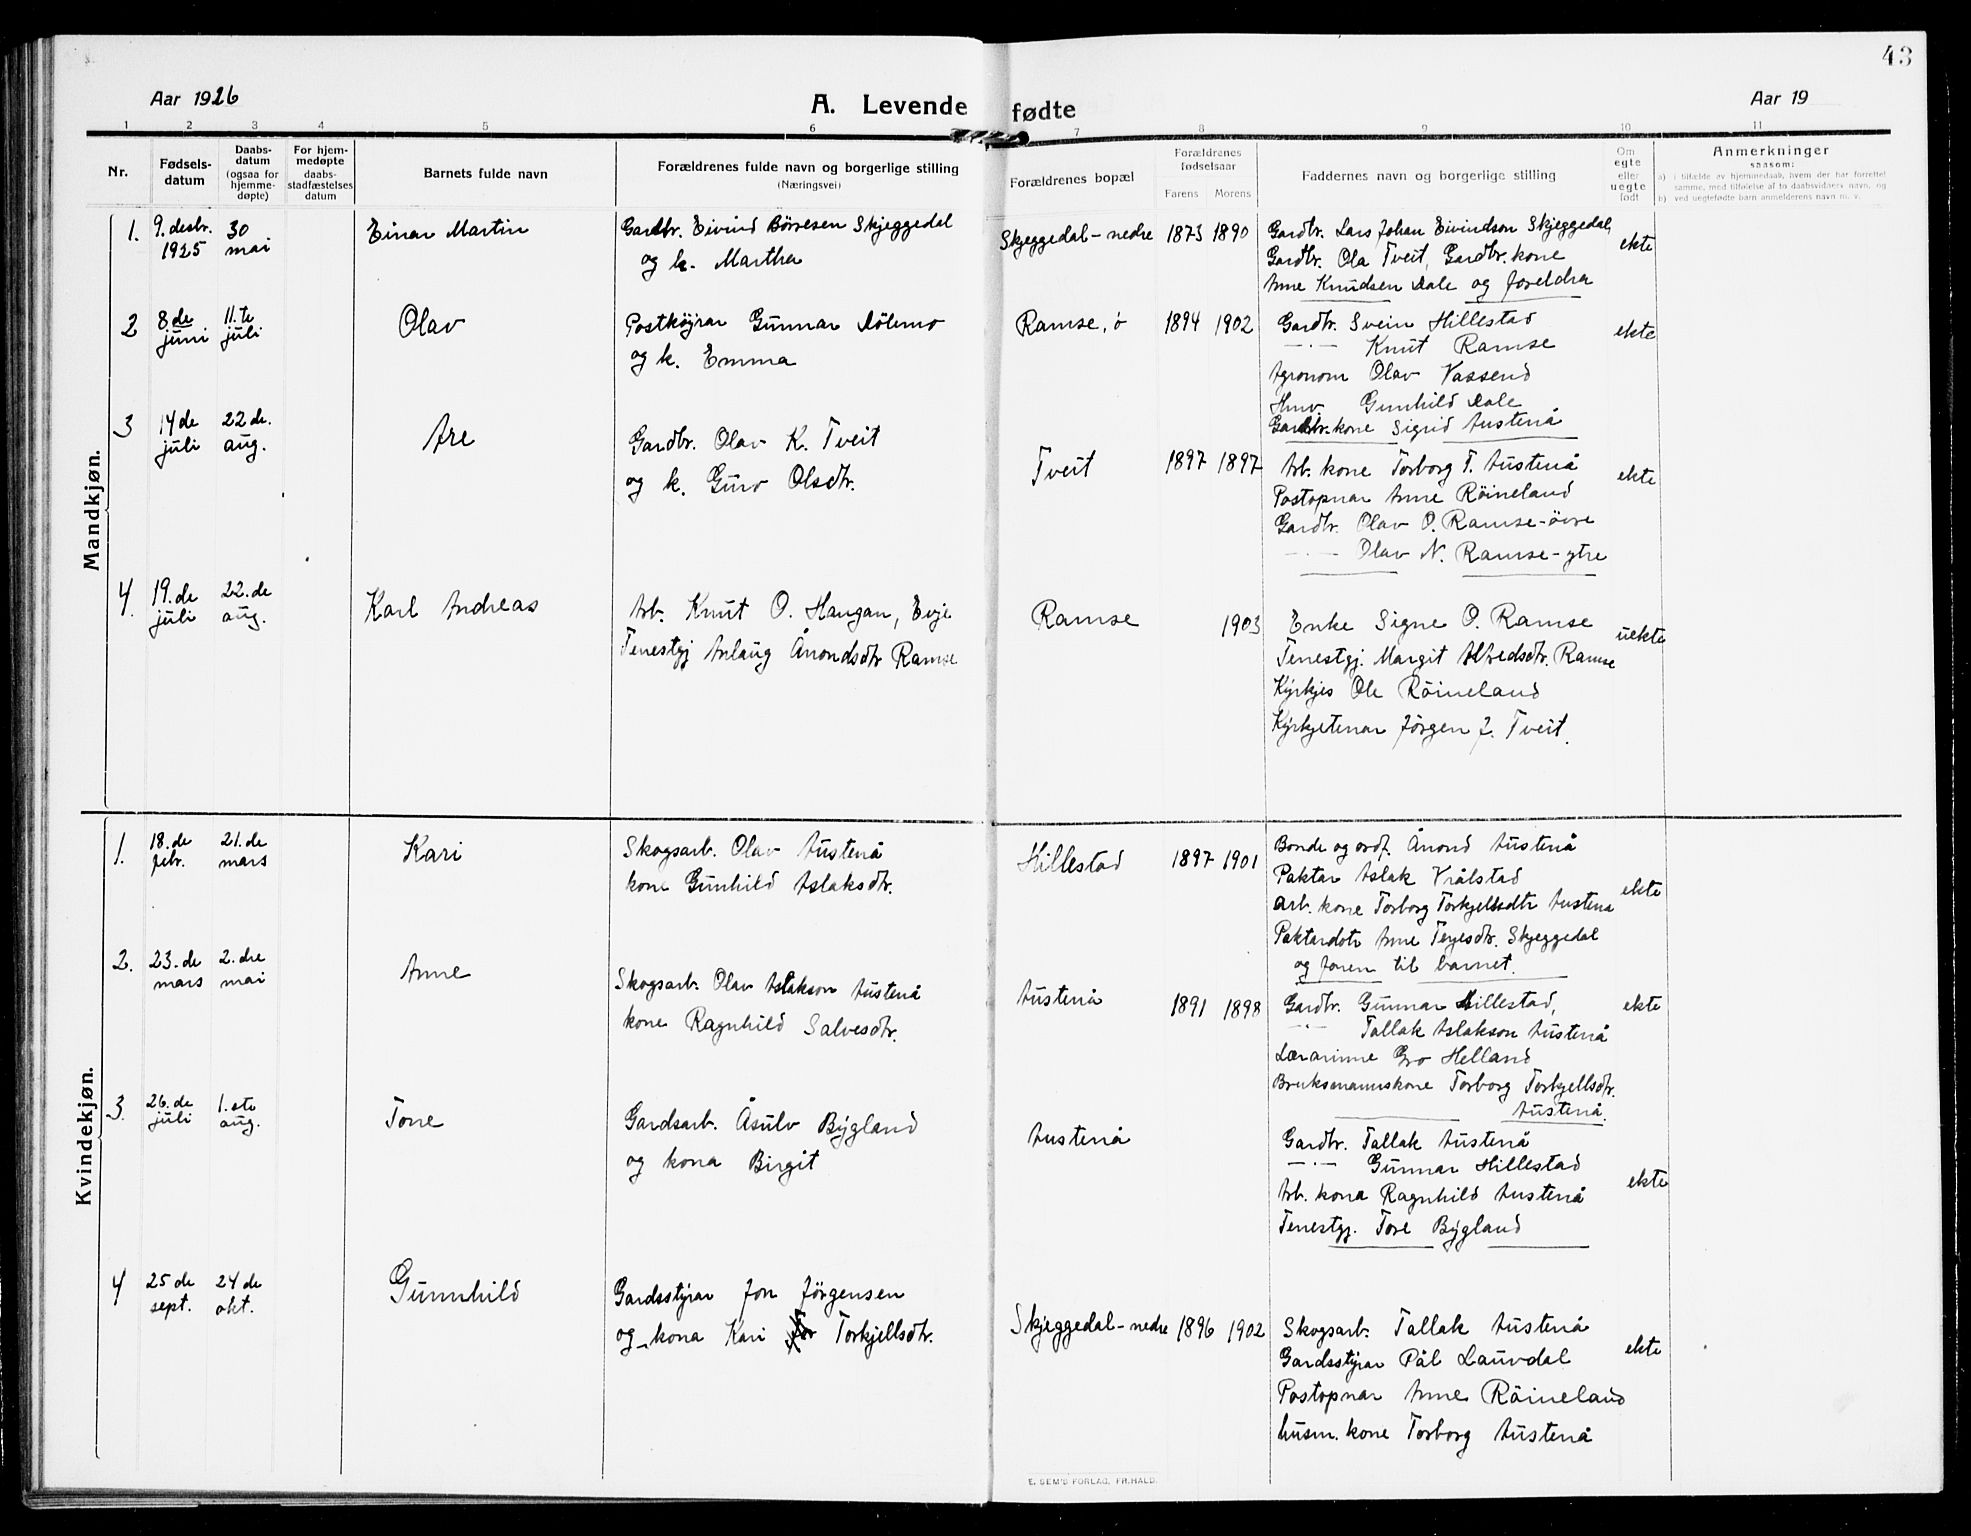 43
Aar 1926
A. Levende fødte
Aar 19
1 2 3 4 5 6 7 8 9 10 11
Nr.
Fødsels-
datum
Daabs-
datum
(ogsaa for
hjemme-
døpte)
For hjem-
medøpte
daabs-
stadfæstelses
datum
Barnets fulde navn
Forældrenes fulde navn og borgerlige stilling
(Næringsvei)
Forældrenes bopæl
Forældrenes
fødselsaar
Farens Morens
Faddernes navn og borgerlige stilling
Om
egte
eller
uegte
født
Anmerkninger
saasom:
a) i tilfælde av hjemmedaab, hvem der har forrettet
samme, med tilføielse af to daabsvidners navn, og
b) ved uegtefødte barn anmelderens navn m. v.
Mandkjøn.
1.
9. desbr.
1925
30
mai
Einar Martin
Gardbr. Eivind Børresen Skjeggedal
og k. Martha
Skjeggedal-nedre
1873 1890
Gardbr. Lars Johan Eivindson Skjeggedal
Gardbr. Ola Tveit, Gardbr. kone
Anne Knudsen Dale og foreldra
ekte
2
8.de
juni
11.te
juli
Olav
Postkøyrar Gunnar Dølemo
og k. Emma
Ramse, ø
1894 1902
Gardbr. Svein Hillestad
—·— Knut Ramse
Agronom Olav Vassend
Hmv. Gunhild Dale
Gardbr. kone Sigrid Austenå
ekte
3
14de
juli
22de.
aug.
Are
Gardbr. Olav K. Tveit
og k. Guro Olsdtr.
Tveit
1897 1897
Arb. kone Torborg T. Austenå
Postopnar Anne Röineland
Gardbr. Olav O. Ramse-övre
—·— Olav N. Ramse-ytre
ekte
4.
19.de
juli
22.de
aug.
Karl Andreas
Arb. Knut O. Haugan, Evje
Tenestgj Anlaug Ånondsdtr Ramse
Ramse
1903
Enke Signe O. Ramse
Tenestgj. Margit Alfredsdtr. Ramse
Kyrkjes Ole Röineland
Kyrkjetenar Jörgen J. Tveit.
uekte
Kvindekjøn.
1.
18.de
febr.
21.de
mars
Kari
Skogsarb. Olav Austenå
kone Gunhild Aslaksdtr.
Hillestad
1897 1901
Bonde og ordf. Ånond Austenå
Paktar Aslak Vrålstad
arb. kone Torborg Torkjellsdtr Austenå
Paktardotr Anne Terjesdtr. Skjeggedal
og faren til barnet.
ekte
2.
23.de
mars
2.dre
mai
Anne
Skogsarb. Olav Aslakson Austenå
kone Ragnhild Salvesdtr.
Austenå
1891 1898
Gardbr. Gunnar Hillestad,
—·— Tallak Aslakson Austenå
Lærarinne Gro Helland
Bruksmannskone Torborg Torkjellsdtr.
Austenå.
ekte
3.
26.de
juli
1.ste
aug.
Tone
Gardsarb. Åsulv Bygland
og kona Birgit
Austenå
Gardbr. Tallak Austenå
—·— Gunnar Hillestad
Arb. kona Ragnhild Austenå
Tenestgj. Tore Bygland
ekte
4
25de
sept.
24de
okt.
Gunnhild
Gardsstyrar Jon Jörgensen
og kona Kari Torkjellsdtr.
Skjeggedal-nedre
1896 1902
Skogsarb. Tallak Austenå
Gardsstyrar Pål Lauvdal
Postopnar Anne Röineland
husm. kone Torborg Austenå
ekte
E. SEM'S FORLAG, FR.HALD.